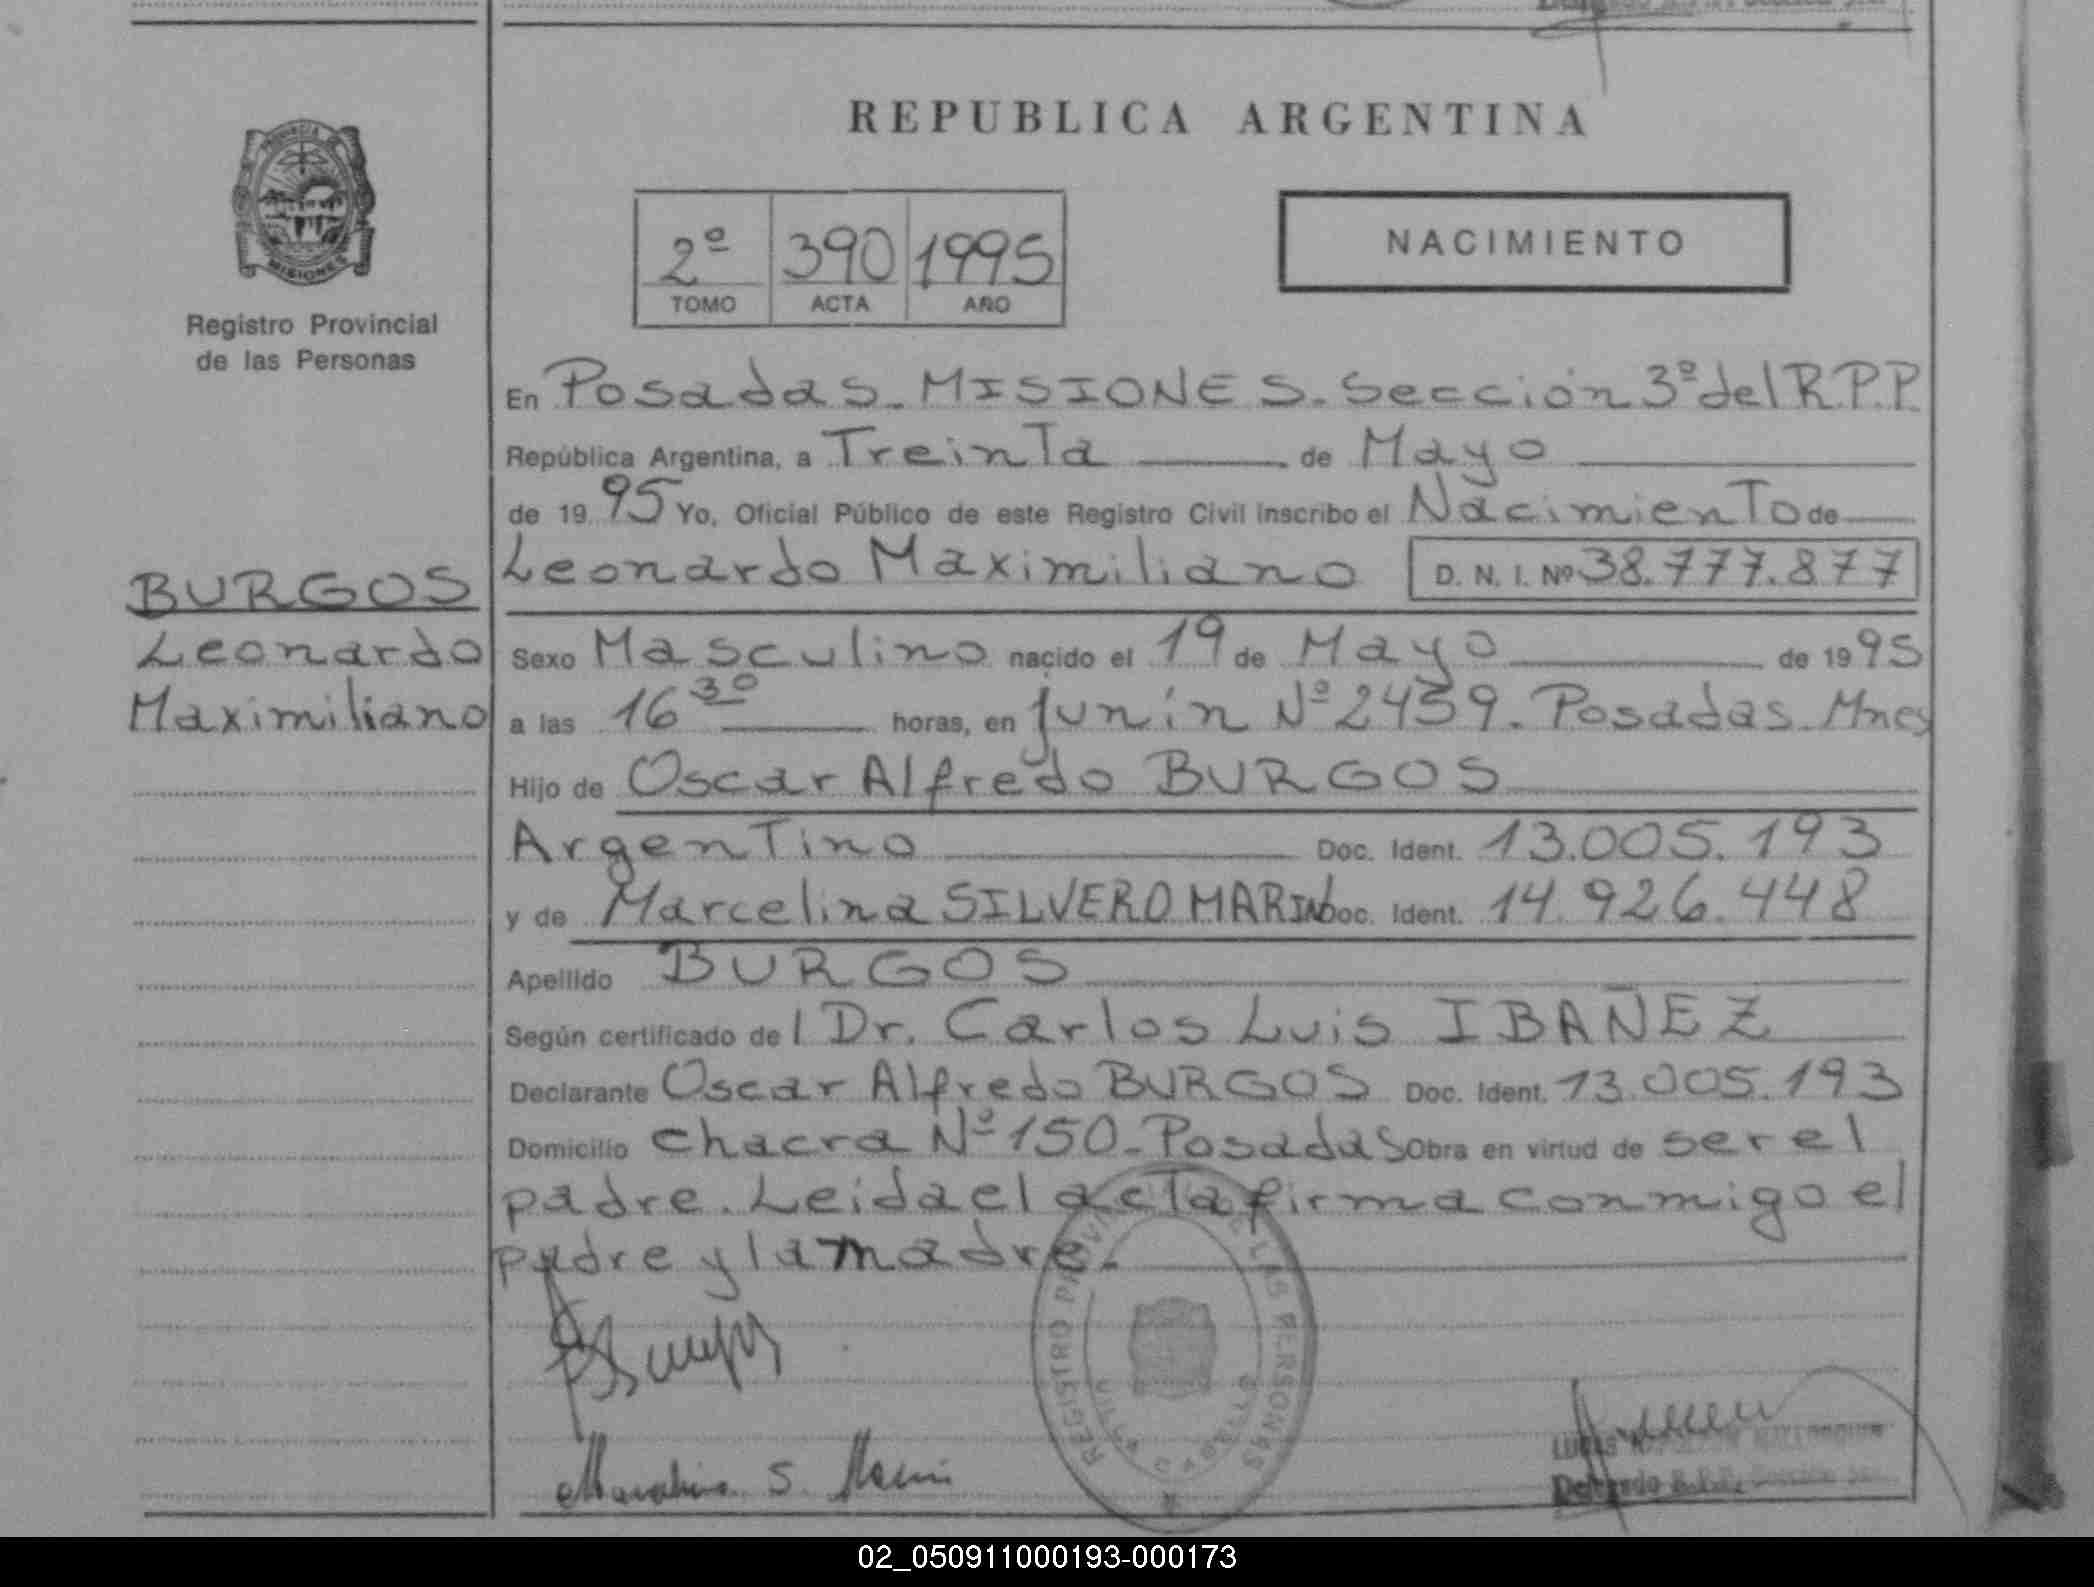 REPUBLICA ARGENTINA
PROVINCIA DE
MISIONES
Registro Provincial
de las Personas
2º 390 1995
TOMO ACTA AÑO
NACIMIENTO
En Posadas. MISIONES. Sección 3º del R.P.P.
República Argentina, a Treinta de Mayo
de 1995 Yo, Oficial Público de este Registro Civil inscribo el Nacimiento de
Leonardo Maximiliano D. N. I. Nº 38.777.877
BURGOS
Leonardo
Maximiliano
Sexo Masculino nacido el 19 de Mayo de 1995
a las 16 30 horas, en Junín Nº 2459. Posadas. Mnes
Hijo de Oscar Alfredo BURGOS
Argentino Doc. Ident. 13.005.193
y de Marcelina SILVERO MARIN Doc. Ident. 14.926.448
Apellido BURGOS
Según certificado del Dr. Carlos Luis IBAÑEZ
Declarante Oscar Alfredo BURGOS Doc. Ident. 13.005.193
Domicilio chacra Nº 150. Posadas Obra en virtud de ser el
padre. Leida el acta firma conmigo el
padre y la madre.
REGISTRO PROVINCIAL DE LAS PERSONAS
Marcelina S. Marin
Delegado R.P.P. Sección
02_050911000193-000173